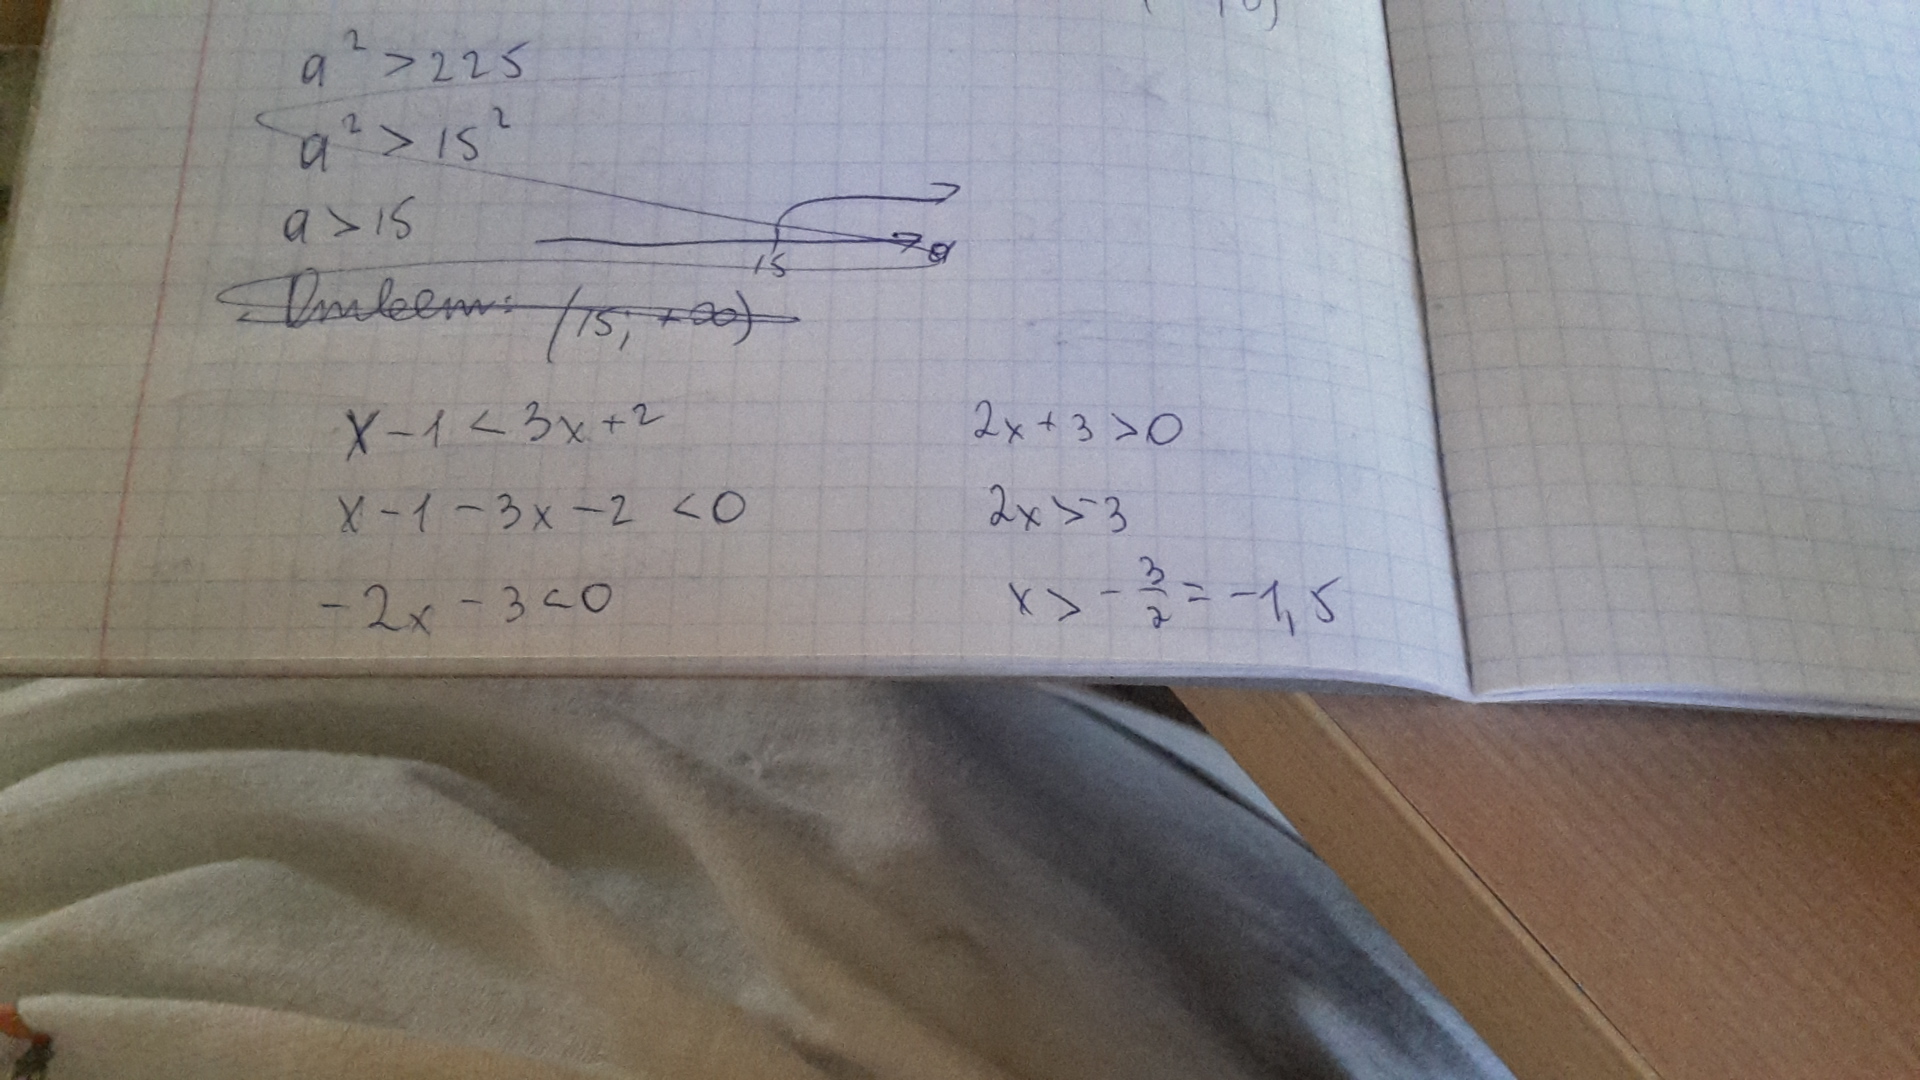 a² > 225
a² > 15²
a > 15
15 a
Ответ: (15; +∞)
x - 1 < 3x + 2
x - 1 - 3x - 2 < 0
-2x - 3 < 0
2x + 3 > 0
2x > -3
x > -3/2 = -1,5